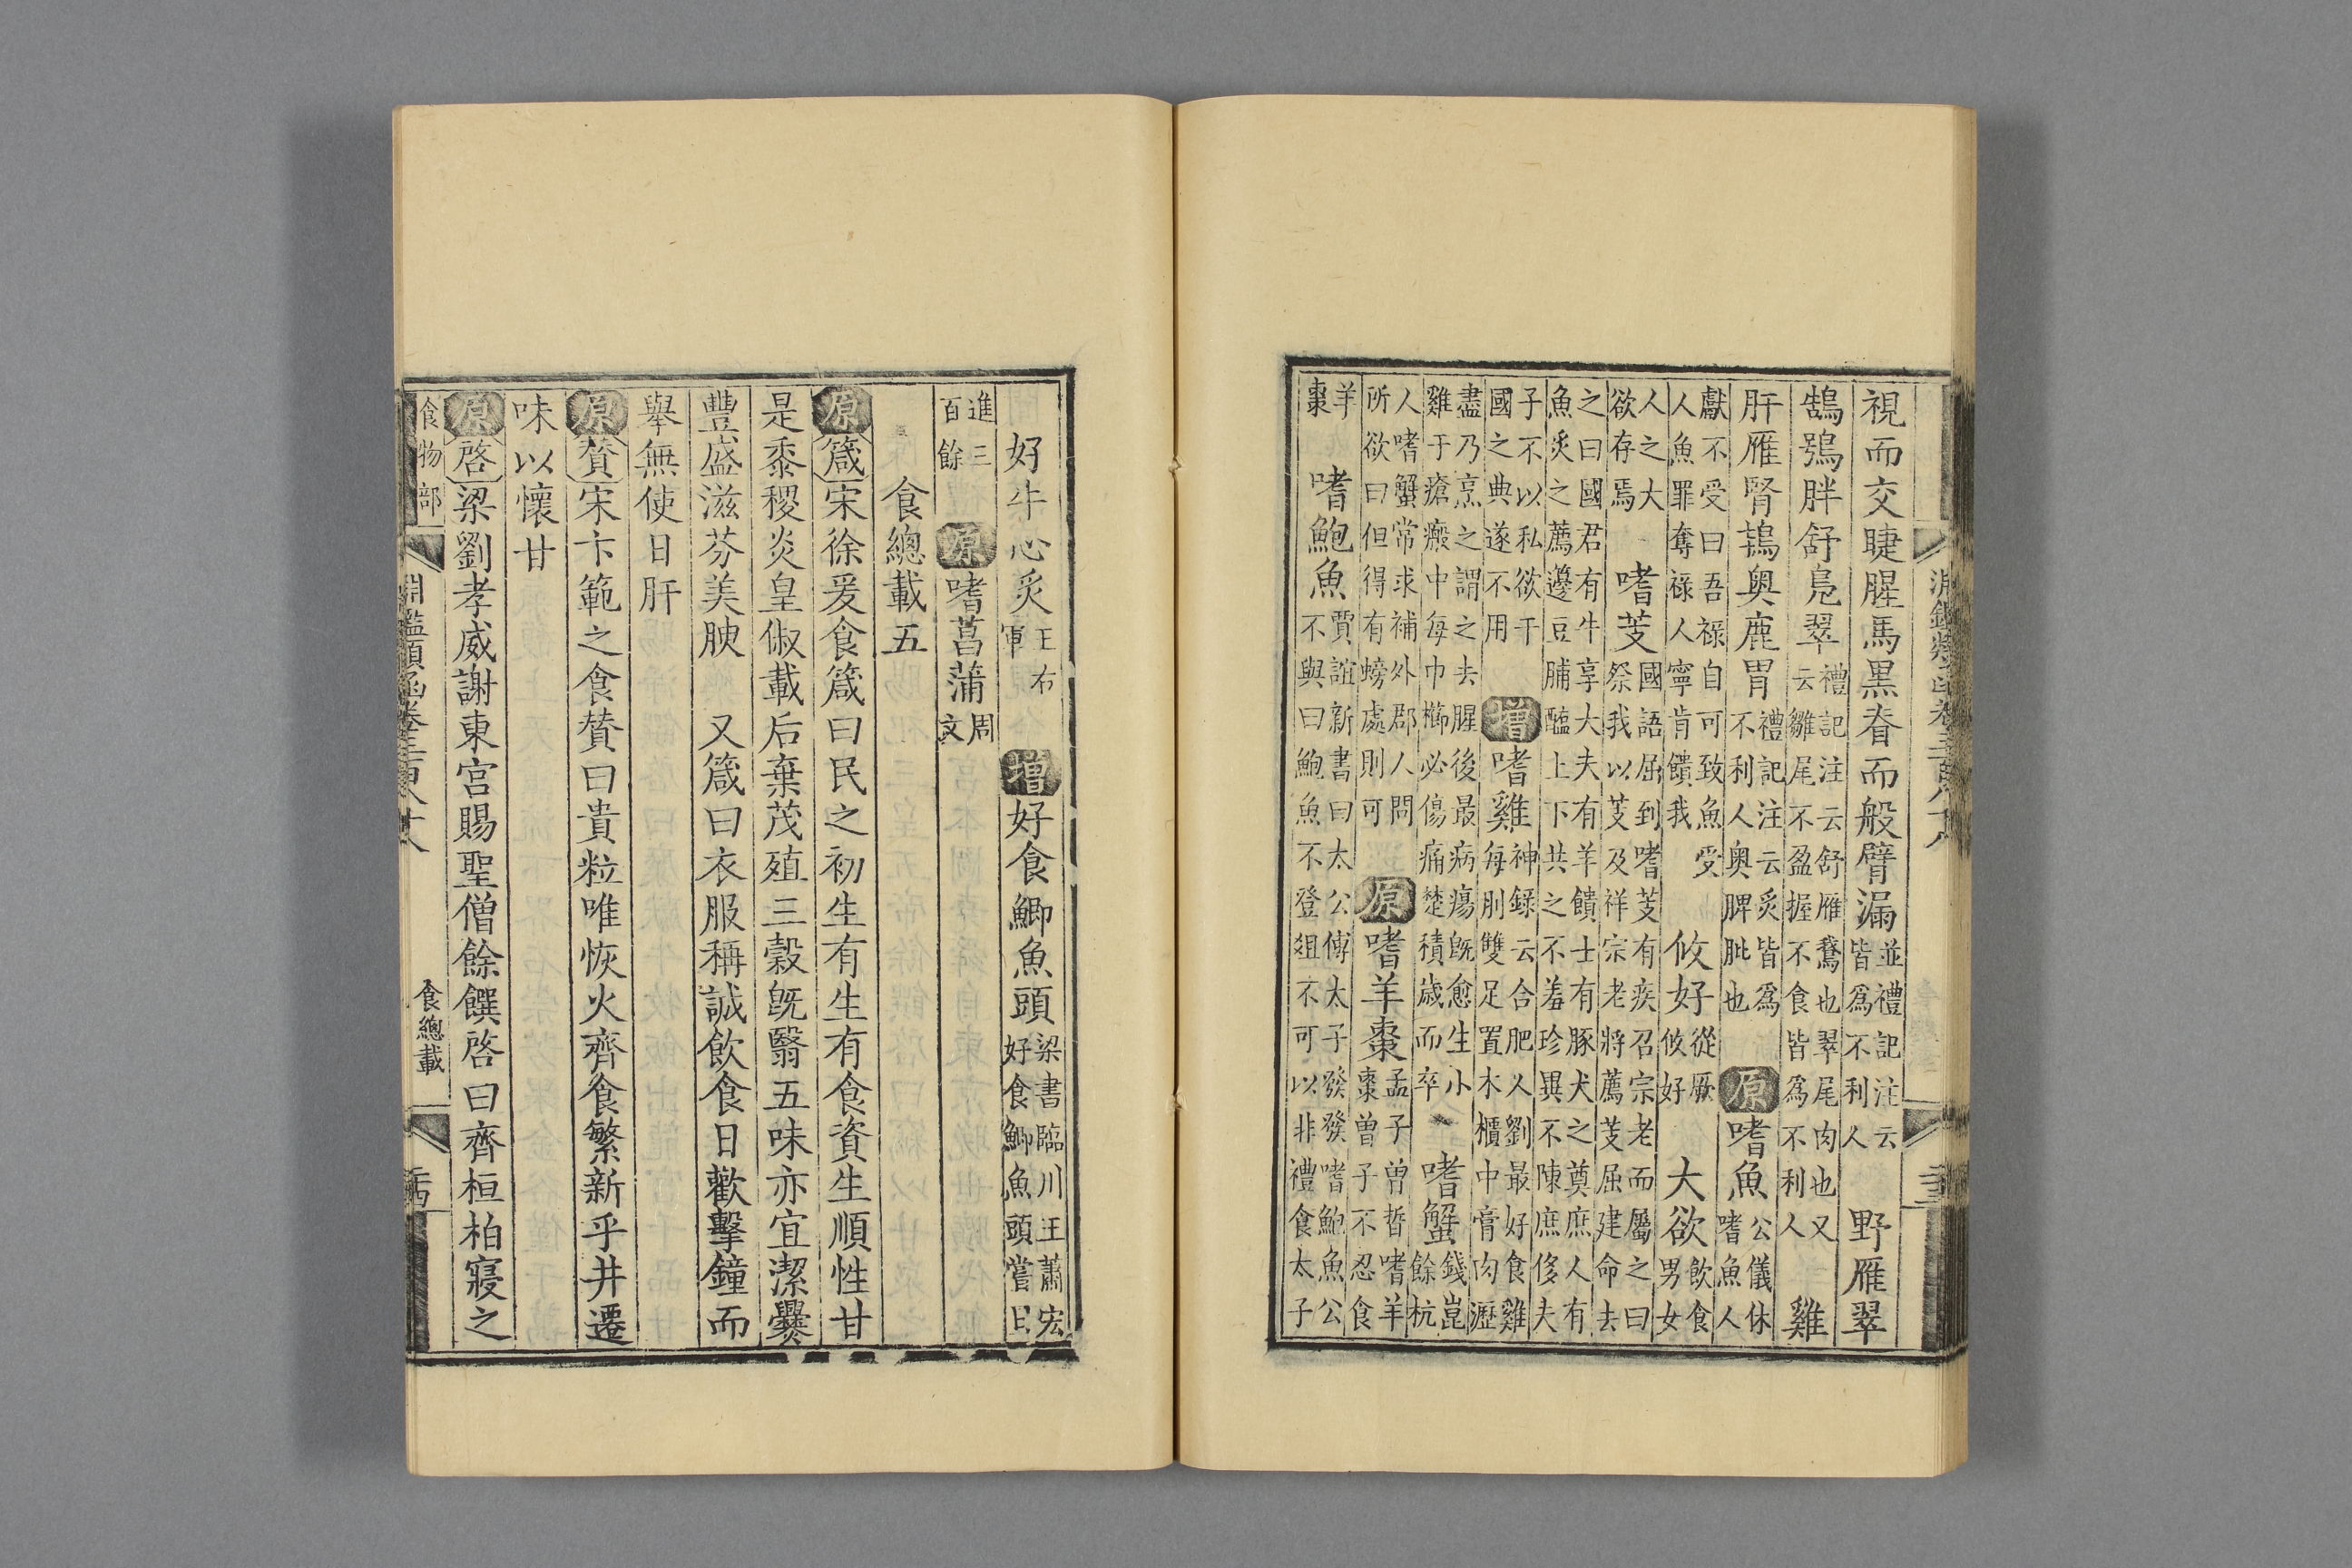 視而交睫腥馬黑脊而般臂漏並禮記注云皆爲不利人野雁翠
鵠鴞胖舒鳧翠禮記注云舒雁鵞也翠尾肉也又云雛尾不盈握不食皆爲不利人雞
肝雁腎鴇奥鹿胃禮記注云炙皆爲不利人奥脾肶也原嗜魚公儀休嗜魚人
獻不受曰吾祿自可致魚受人魚罪奪祿人寧肯饋我攸好從厥攸好大欲飲食男女
人之大欲存焉嗜芰國語屈到嗜芰有疾召宗老而屬之曰祭我以芰及祥宗老將薦芰屈建命去
之曰國君有牛享大夫有羊饋士有豚犬之奠庶人有魚炙之薦籩豆脯醢上下共之不羞珍異不陳庶侈夫
子不以私欲干國之典遂不用增嗜雞神錄云合肥人劉最好食雞每刖雙足置木櫃中膏肉瀝
盡乃烹之謂之去腥後最病瘍旣愈生小雞于瘡瘢中每巾櫛必傷痛楚積歲而卒嗜蟹錢崑餘杭
人嗜蟹常求補外郡人問所欲曰但得有螃處則可原嗜羊棗孟子曾晳嗜羊棗曾子不忍食
羊棗嗜鮑魚賈誼新書曰太公傅太子發發嗜鮑魚公不與曰鮑魚不登爼不可以非禮食太子
好牛心炙王右軍增好食鯽魚頭梁書臨川王蕭宏好食鯽魚頭嘗日
進三百餘原嗜菖蒲周文
食總載五
原箴宋徐爰食箴曰民之初生有生有食資生順性甘
是黍稷炎皇俶載后棄茂殖三穀旣翳五味亦宜潔爨
豐盛滋芬美腴 又箴曰衣服稱誠飲食日歡擊鐘而
舉無使日肝
原贊宋卞範之食贊曰貴粒唯恢火齊食繁新乎井遷
味以懷甘
原啓梁劉孝威謝東宮賜聖僧餘饌啓曰齊桓柏寢之
食物部 淵鑑類函卷三百八十八 食總載